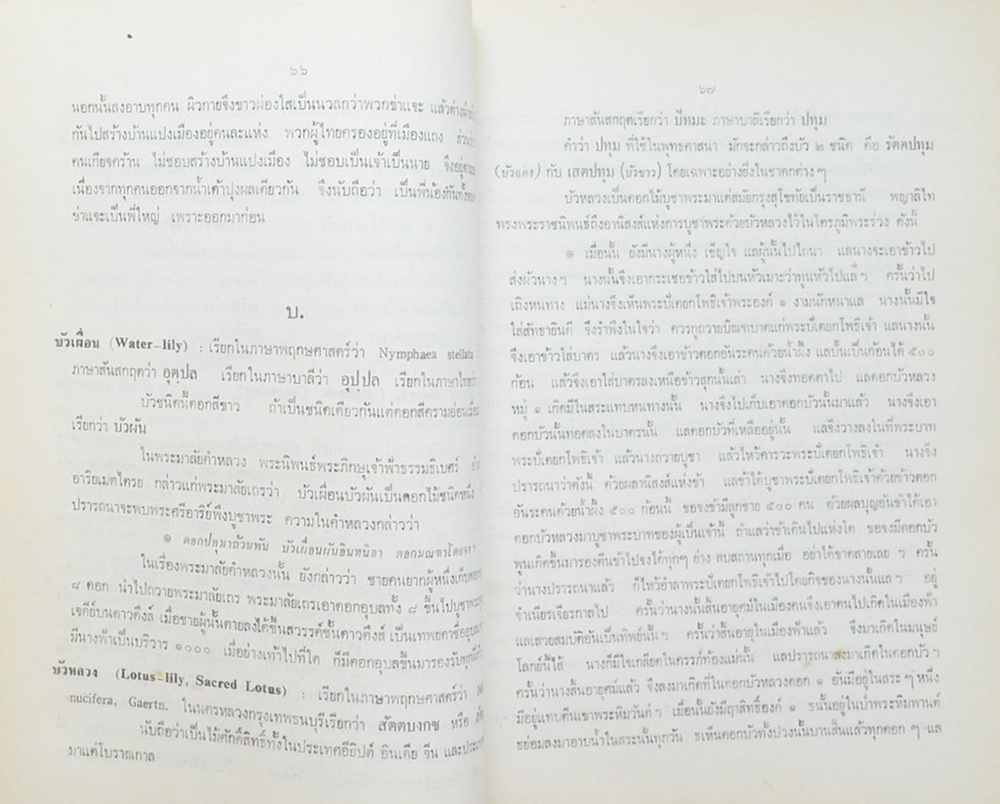 ๖๖
นอกนั้นลงอาบทุกคน ผิวกายจึงขาวผ่องใสเป็นนวลกว่าพวกข่าแจะ แล้วต่าง
กันไปสร้างบ้านแปงเมืองอยู่คนละแห่ง พวกผู้ไทยครองอยู่ที่เมืองแถง
คนเกียจคร้าน ไม่ชอบสร้างบ้านแปงเมือง ไม่ชอบเป็นเจ้าเป็นนาย จึงอยู่
เนื่องจากทุกคนออกจากน้ำเต้าปุงผลเดียวกัน จึงนับถือว่า เป็นพี่น้องกัน
ข่าแจะเป็นพี่ใหญ่ เพราะออกมาก่อน
บ.
บัวเผื่อน (Water-lily) : เรียกในภาษาพฤกษศาสตร์ว่า Nymphaea stellata
ภาษาสันสกฤตว่า อุตฺปล เรียกในภาษาบาลีว่า อุปฺปล เรียกในภาษา
บัวชนิดนี้ดอกสีขาว ถ้าเป็นชนิดเดียวกันแต่ดอกสีครามอ่อน
เรียกว่า บัวผัน
ในพระมาลัยคำหลวง พระนิพนธ์พระภิกษุเจ้าฟ้าธรรมธิเบศร์
อาริยเมตไตรย กล่าวแก่พระมาลัยเถรว่า บัวเผื่อนบัวผันเป็นดอกไม้ชนิดหนึ่ง
ปรารถนาจะพบพระศรีอาริย์พึงบูชาพระ ความในคำหลวงกล่าวว่า
๑ ดอกปทุมาถ้วนพัน บัวเผื่อนผันอินทนิลา ดอกมณฑา
ในเรื่องพระมาลัยคำหลวงนั้น ยังกล่าวว่า ชายคนยากผู้หนึ่งเก็บดอก
๘ ดอก นำไปถวายพระมาลัยเถร พระมาลัยเถรเอาดอกอุบลทั้ง ๘ ขึ้นไปบูชาพระ
เจดีย์บนดาวดึงส์ เมื่อชายผู้นั้นตายลงได้ขึ้นสวรรค์ชั้นดาวดึงส์ เป็นเทพยดาชื่อ
มีนางฟ้าเป็นบริวาร ๑๐๐๐ เมื่อย่างเท้าไปที่ใด ก็มีดอกอุบลขึ้นมารองรับทุก
บัวหลวง (Lotus-lily, Sacred Lotus) : เรียกในภาษาพฤกษศาสตร์ว่า
nucifera, Gaertn. ในนครหลวงกรุงเทพธนบุรีเรียกว่า สัตตบงกช หรือ
นับถือว่าเป็นไม้ศักดิ์สิทธิ์ทั้งในประเทศอียิปต์ อินเดีย จีน และ
มาแต่โบราณกาล
๖๗
ภาษาสันสกฤตเรียกว่า ปัทมะ ภาษาบาลีเรียกว่า ปทุม
คำว่า ปทุม ที่ใช้ในพุทธศาสนา มักจะกล่าวถึงบัว ๒ ชนิด คือ รัตตปทุม
(บัวแดง) กับ เสตปทุม (บัวขาว) โดยเฉพาะอย่างยิ่งในชาดกต่าง ๆ
บัวหลวงเป็นดอกไม้บูชาพระมาแต่สมัยกรุงสุโขทัยเป็นราชธานี พญาลิไท
ทรงพระราชนิพนธ์ถึงอานิสงส์แห่งการบูชาพระด้วยบัวหลวงไว้ในไตรภูมิพระร่วง ดังนี้
๑ เมื่อนั้น ยังมีนางผู้หนึ่ง เข็ญใจ แลผู้นั้นไปไถนา แลนางจะเอาข้าวไป
ส่งผัวนาง ๆ นางนั้นจึงเอากระเชอข้าวใส่ไปบนหัวเมาะว่าทูนหัวไปแล ฯ ครั้นว่าไป
เถิงหนทาง แม่นางจึงเห็นพระปัเดยกโพธิเจ้าพระองค์ ๑ งามนักหนาแล นางนั้นมีใจ
ใส่สัทธายินดี จึงรำพึงในใจว่า ควรกูถวายบิณฑบาตแก่พระปัเดยกโพธิเจ้า แลนางนั้น
จึงเอาข้าวใส่บาตร แล้วนางจึงเอาข้าวตอกอันระคนด้วยน้ำผึ้ง แลปั้นเป็นก้อนได้ ๕๐๐
ก้อน แล้วจึงเอาใส่บาตรลงเหนือข้าวสุกนั้นเล่า นางจึงทอดตาไป แลดอกบัวหลวง
หมู่ ๑ เกิดมีในสระแทบหนทางนั้น นางจึงไปเก็บเอาดอกบัวนั้นมาแล้ว นางจึงเอา
ดอกบัวนั้นทอดลงในบาตรนั้น แลดอกบัวที่เหลืออยู่นั้น แลจึงวางลงในที่พระบาท
พระปัเดยกโพธิเจ้า แล้วนางถวายบูชา แล้วไหว้คารวะพระปัเดยกโพธิเจ้า นางจึง
ปรารถนาว่าดังนี้ ด้วยผลานิสงส์แห่งข้า แลข้าได้บูชาพระปัเดยกโพธิเจ้าด้วยข้าวตอก
อันระคนด้วยน้ำผึ้ง ๕๐๐ ก้อนนี้ ขอจงข้ามีลูกชาย ๕๐๐ คน ด้วยผลบุญอันข้าได้เอา
ดอกบัวหลวงมาบูชาพระบาทของผู้เป็นเจ้านี้ ถ้าแลว่าข้าเดินไปแห่งใด ขอจงมีดอกบัว
พูนเกิดขึ้นมารองตีนข้าไปจงได้ทุกๆ ย่าง สบสถานทุกเมื่อ อย่าได้ขาดคลายเลย ฯ ครั้น
ว่านางปรารถนาแล้ว ก็ไหว้อำลาพระปัเดยกโพธิเจ้าไปโดยกิจของนางนั้นแล ฯ อยู่
จำเนียรเจียรกาลไป ครั้นว่านางนั้นสิ้นอายุศม์ในเมืองคนจึงเอาตนไปเกิดในเมืองฟ้า
แลเสวยสมบัติอันเป็นทิพย์นั้น ฯ ครั้นว่าสิ้นอายุในเมืองฟ้าแล้ว จึงมาเกิดในมนุษย์
โลกย์นี้ไส้ นางก็มีใจเกลียดในครรภ์ท้องแม่นั้น แลปรารถนาลงมาเกิดในดอกบัว ฯ
ครั้นว่านางสิ้นอายุศม์แล้ว จึงลงมาเกิดที่ในดอกบัวหลวงดอก ๑ อันมีอยู่ในสระ ๆ หนึ่ง
มีอยู่แทบตีนเขาพระหิมวันต์ ฯ เมื่อนั้นยังมีฤาสิทธิ์องค์ ๑ ธนั้นอยู่ในป่าพระหิมพานต์
ธย่อมลงมาอาบน้ำในสระนั้นทุกวัน ธเห็นดอกบัวทั้งปวงนั้นบานสิ้นแล้วทุกดอก ๆ แล